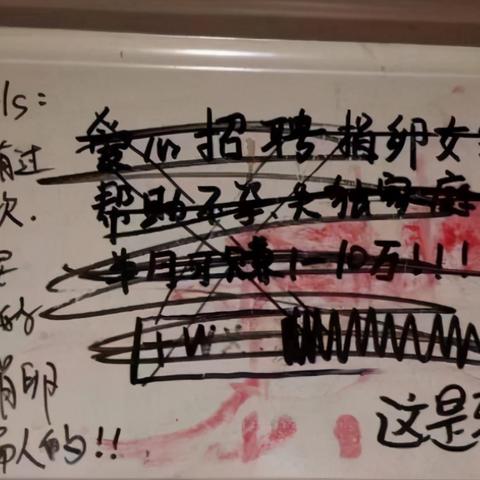 ls:
有过
次.
捐卵
骗人的!!
爱心招聘捐卵女
帮助不孕失独家庭
单月可赚1-10万!!!
+W
这是